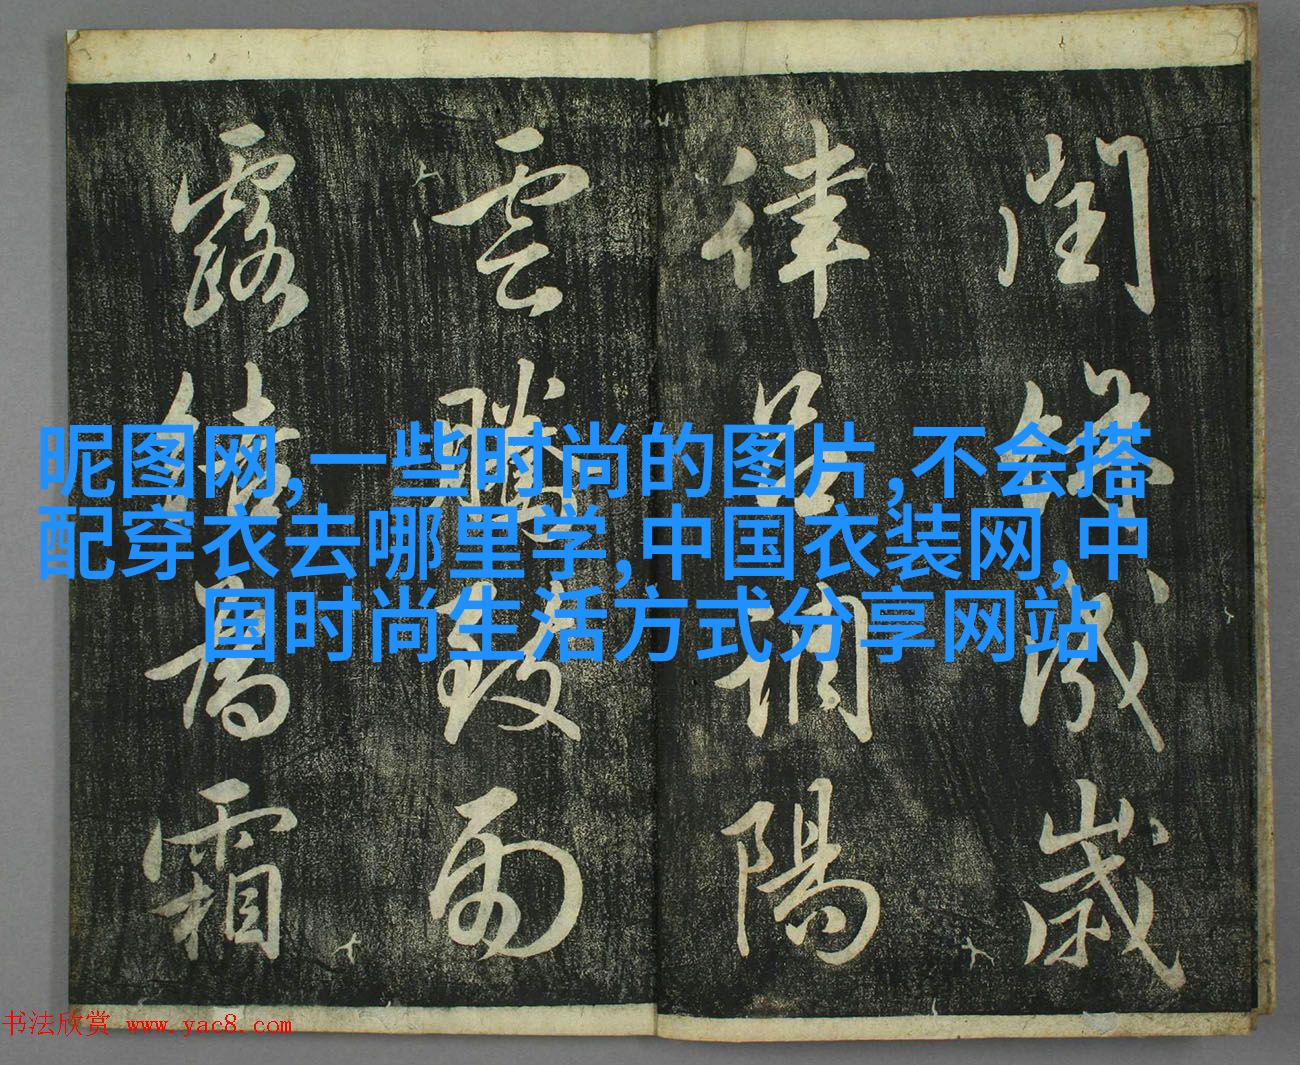 閏餘成歲
律呂調陽
雲騰致雨
露結為霜
昵图网,一些时尚的图片,不会搭
配穿衣去哪里学,中国衣装网,中
国时尚生活方式分享网站
书法欣赏 www.yac8.com